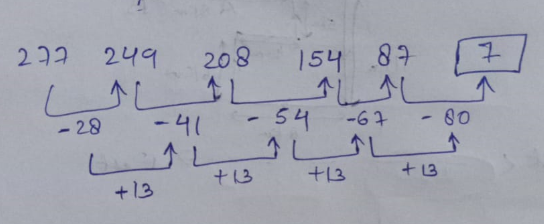 277 249 208 154 87 7
-28 -41 -54 -67 -80
+13 +13 +13 +13